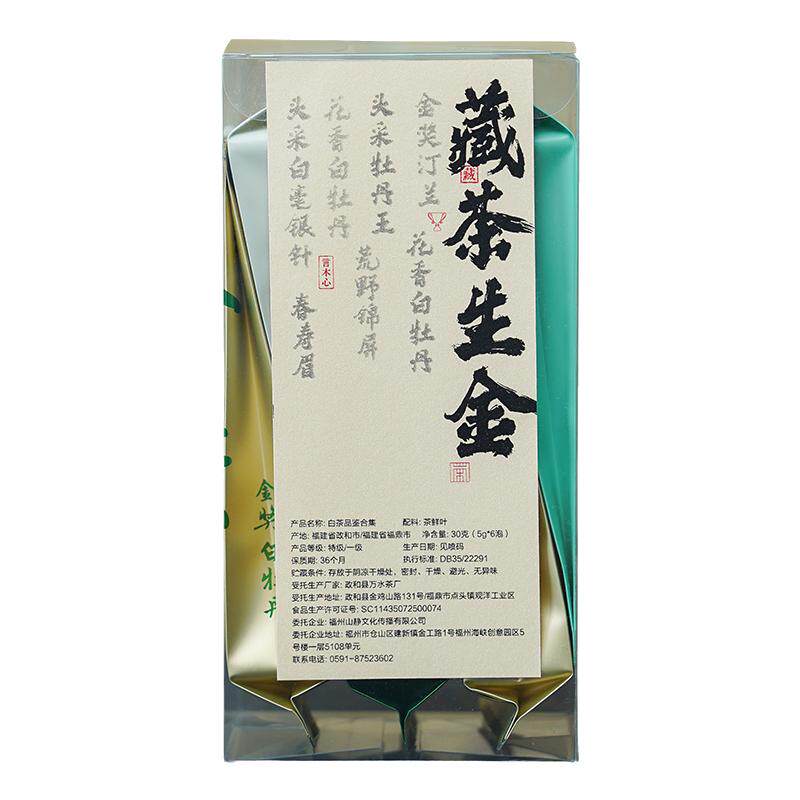 藏茶生金
藏
金奖汀兰
花香白牡丹
头采牡丹王
荒野锦屏
花香白牡丹
言木心
头采白毫银针
春寿眉
茶
产品名称: 白茶品鉴合集 配料: 茶鲜叶
产地: 福建省政和市/福建省福鼎市 净含量: 30克（5g*6泡）
产品等级: 特级/一级 生产日期: 见喷码
保质期: 36个月 执行标准: DB35/22291
贮藏条件: 存放于阴凉干燥处、密封、干燥、避光、无异味
受托生产厂家: 政和县万水茶厂
受托生产地址: 政和县金鸡山路131号/福鼎市点头镇观洋工业区
食品生产许可证号: SC11435072500074
委托企业: 福州山静文化传播有限公司
委托企业地址: 福州市仓山区建新镇金工路1号福州海峡创意园区5
号楼一层5108单元
联系电话: 0591-87523602
金奖白牡丹